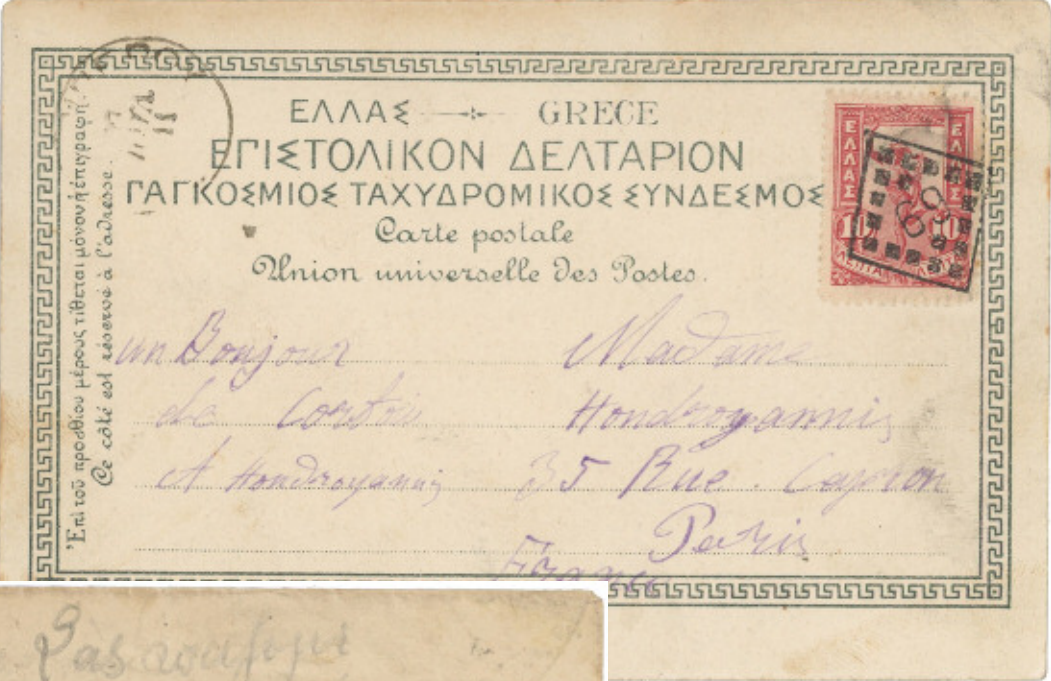 ΕΛΛΑΣ GRECE
ΕΠΙΣΤΟΛΙΚΟΝ ΔΕΛΤΑΡΙΟΝ
ΠΑΓΚΟΣΜΙΟΣ ΤΑΧΥΔΡΟΜΙΚΟΣ ΣΥΝΔΕΣΜΟΣ
Carte postale
Union universelle des Postes.
Ἐπὶ τοῦ προσθίου μέρους τίθεται μόνον ἡ ἐπιγραφή.
Ce côté est réservé à l'adresse.
ΕΛΛΑΣ
ΕΛΛΑΣ
10 10
un Bonjour
de
A Hondroyannis
Madame
Hondroyannis
35 Rue
Paris
France